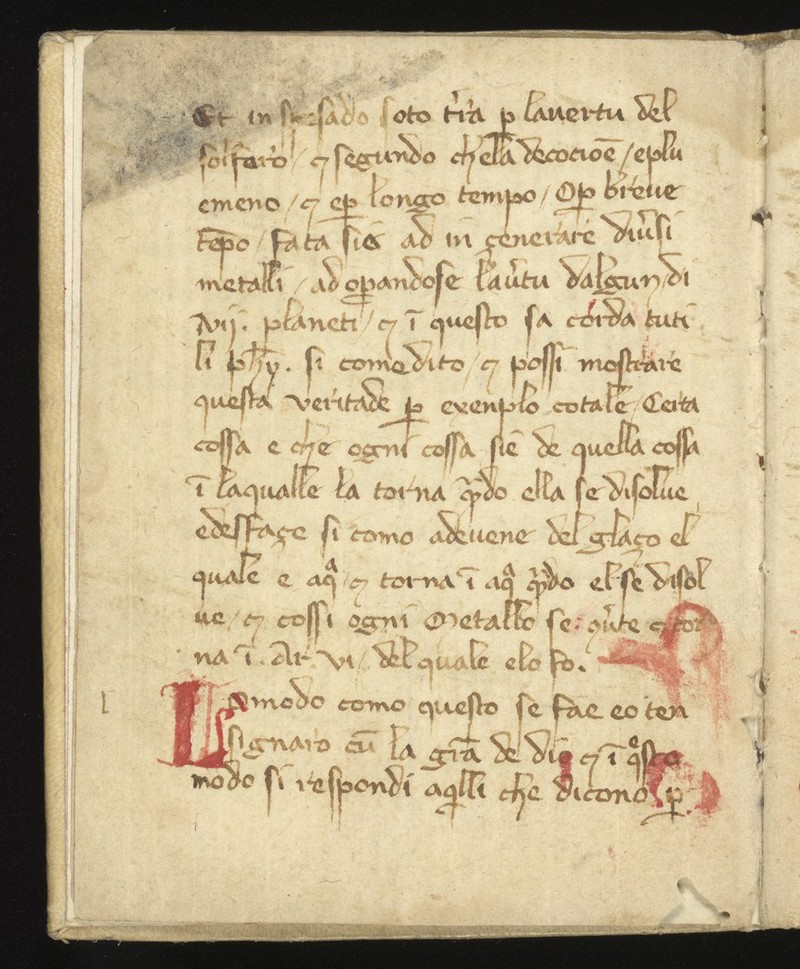 Et in soto tr̄a ꝑ la vertu del
solfero / ⁊ segundo ch ella decocioē / e plu
e meno / ⁊ e ꝑ longo tempo / O ꝑ breue
tēpo / fata sie ad in generare diu̾si
metalli / ad oꝑandose la v̾tu dalgun di
vij. planeti / ⁊ ī questo sa corda tuti
li ph̄y. si como dito / ⁊ possi mostrare
questa veritade ꝑ exenplo cotale / Certa
cossa e che ogni cossa sie de quella cossa
ī la qualle la torna qn̄do ella se disolue
e desfaçe si como adeuene del glaço el
quale e aqᵃ ⁊ torna ī aqᵃ qn̄do el se disol
ue / ⁊ cossi ogni Metallo se ⁊ tor
na ī. Ar. vi / del quale elo fo.
Lo modo como questo se fae eo ten
signaro cū la gr̄a de dio ⁊ ī qᵒsto
modo si respondi aquilli che dicono ꝑ